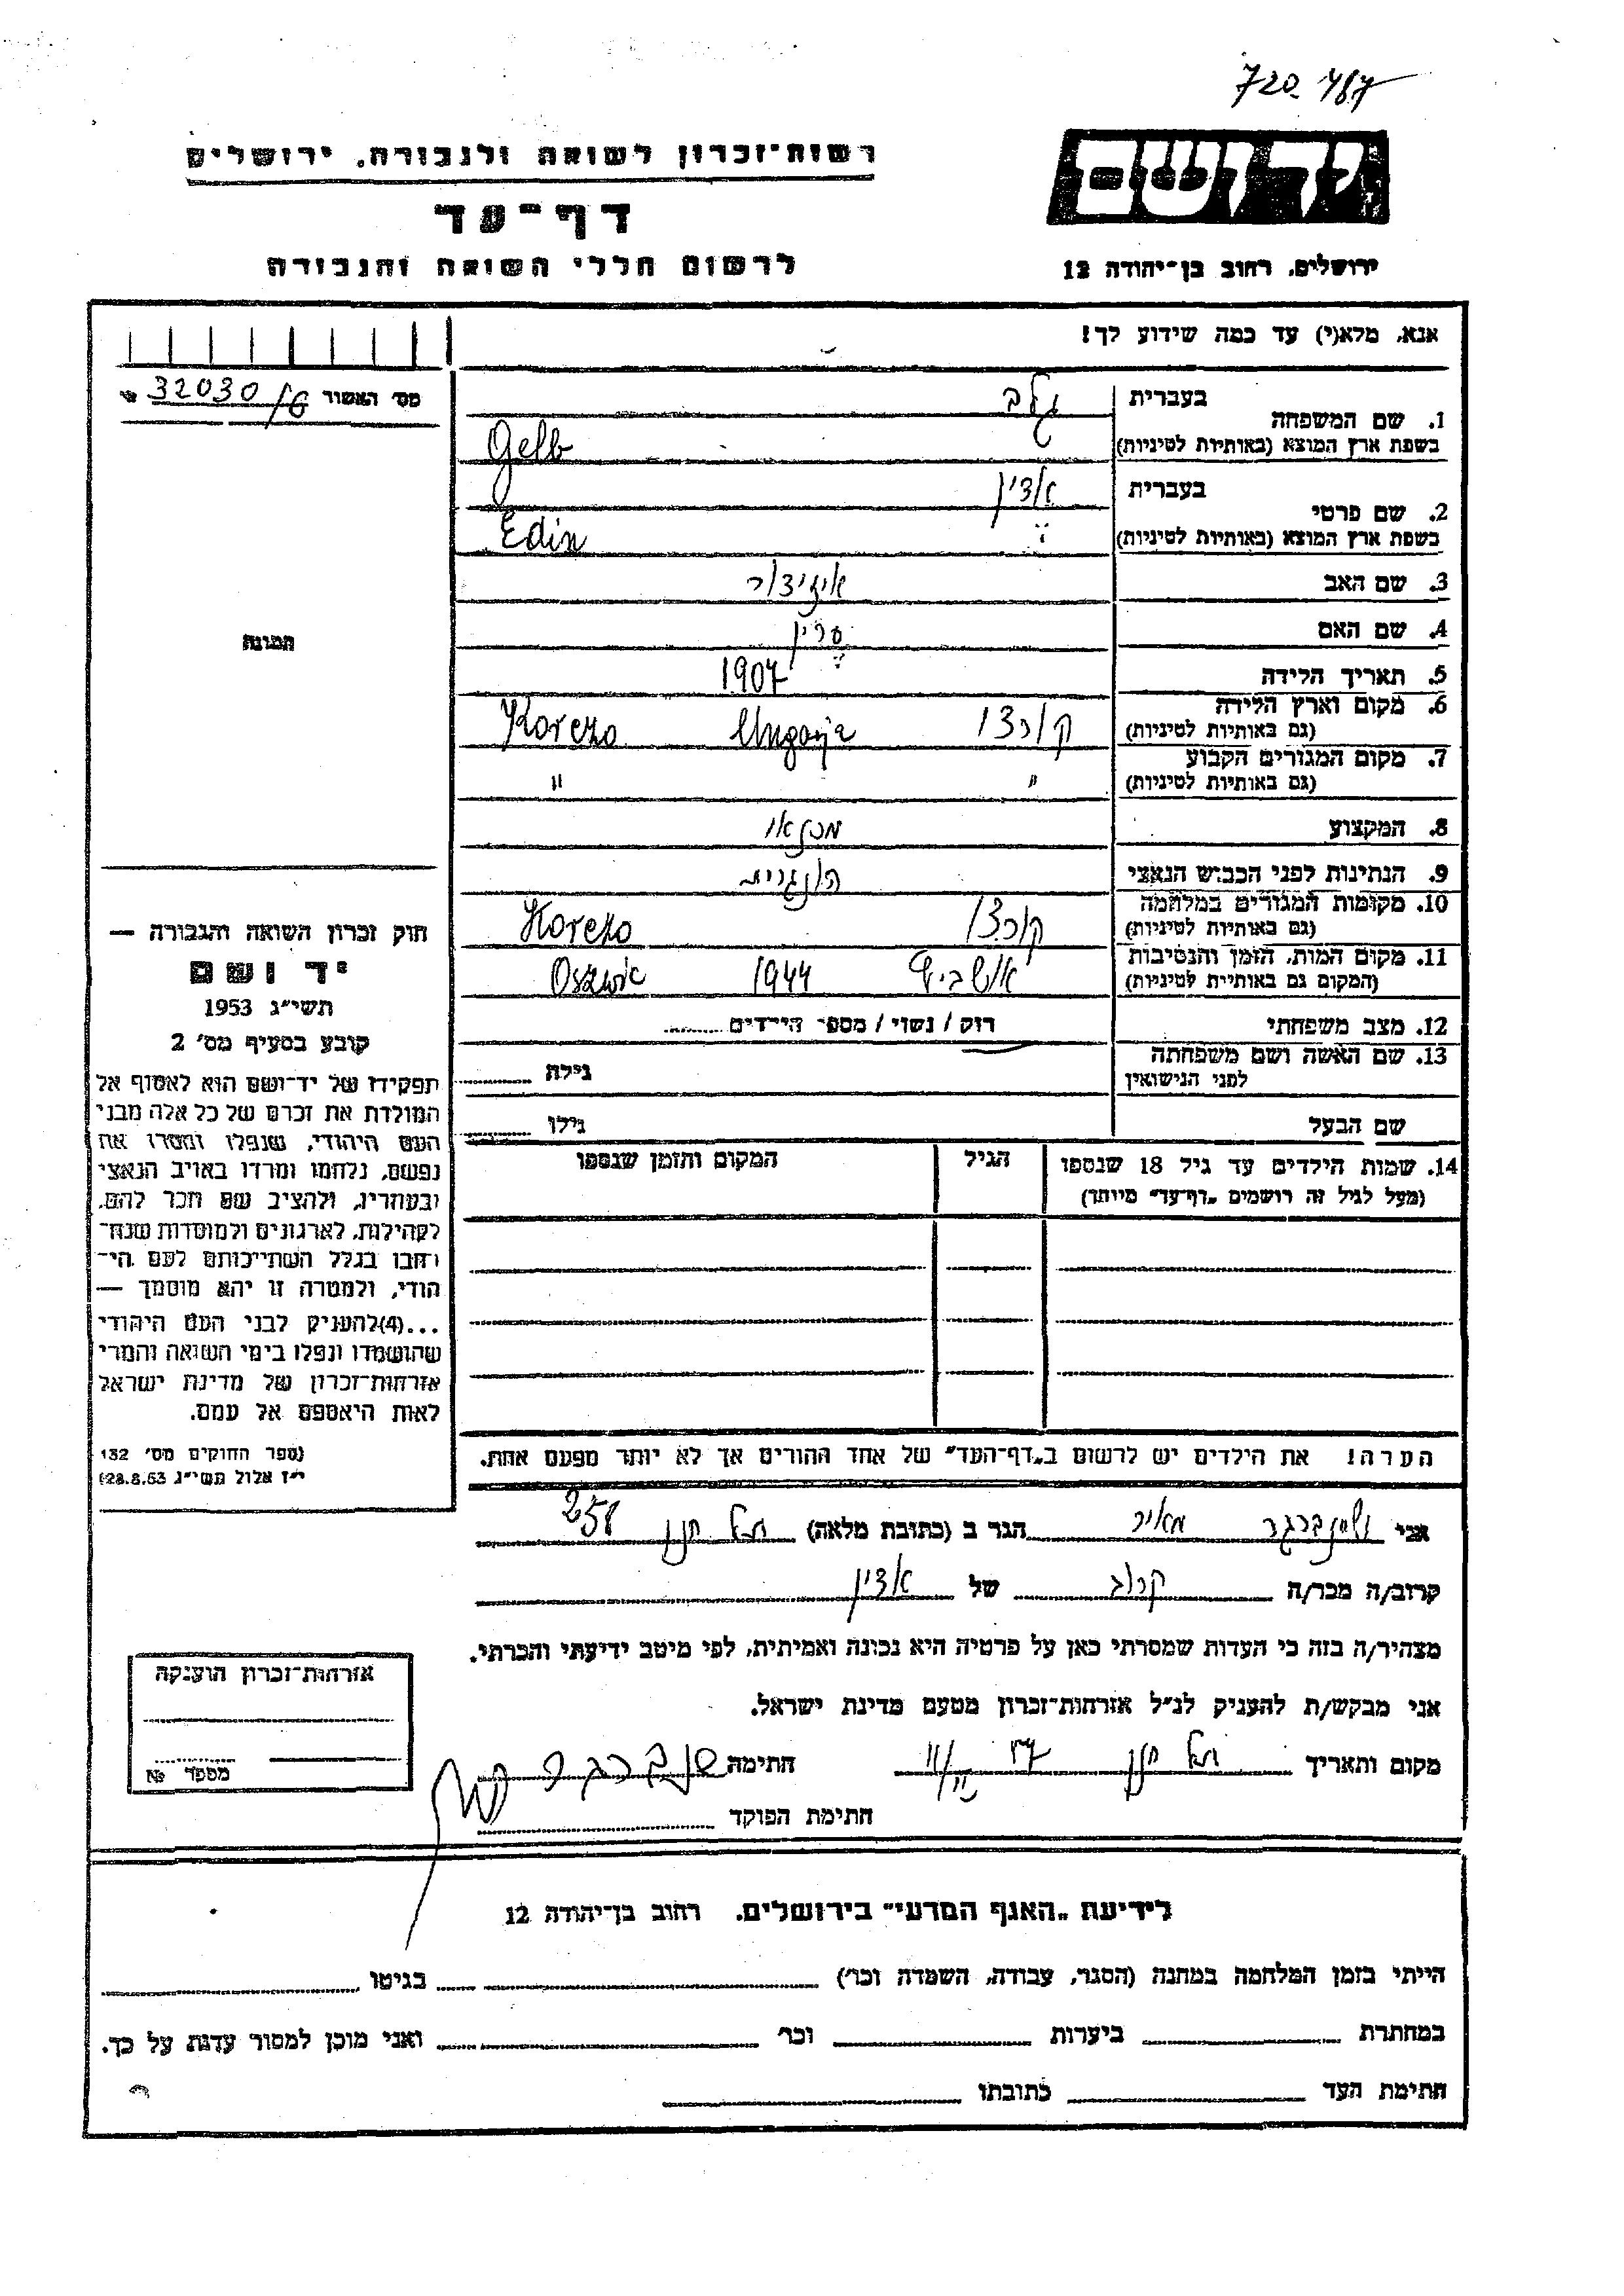 720 767
רשות־זכרון לשואה ולגבורה, ירושלים
יד ושם
דף־עד
לרשום חללי השואה והגבורה
ירושלים, רחוב בן־יהודה 12
אנא, מלא(י) עד כמה שידוע לך!
מס׳ האשור 32030/G
1. שם המשפחה בעברית גלב
בשפת ארץ המוצא (באותיות לטיניות) Gelb
2. שם פרטי בעברית אדין
בשפת ארץ המוצא (באותיות לטיניות) Edin
3. שם האב
4. שם האם
5. תאריך הלידה 1907
6. מקום וארץ הלידה
(גם באותיות לטיניות) Ungarja
7. מקום המגורים הקבוע
(גם באותיות לטיניות) " "
8. המקצוע
9. הנתינות לפני הכבוש הנאצי הונגרית
10. מקומות המגורים במלחמה
(גם באותיות לטיניות)
11. מקום המות, הזמן והנסיבות
(המקום גם באותיות לטיניות) 1944
12. מצב משפחתי רוק / נשוי / מספר הילדים
13. שם האשה ושם משפחתה
לפני הנישואין גילה
שם הבעל גילו
14. שמות הילדים עד גיל 18 שנספו הגיל המקום והזמן שנספו
(מעל לגיל זה רושמים „דף־עד" מיוחד)
הערה! את הילדים יש לרשום ב„דף־העד" של אחד ההורים אך לא יותר מפעם אחת.
תמונה
חוק זכרון השואה והגבורה —
יד ושם
תשי״ג 1953
קובע בסעיף מס׳ 2
תפקידו של יד־ושם הוא לאסוף אל
המולדת את זכרם של כל אלה מבני
העם היהודי, שנפלו ומסרו את
נפשם, נלחמו ומרדו באויב הנאצי
ובעוזריו, ולהציב שם וזכר להם,
לקהילות, לארגונים ולמוסדות שנח־
רבו בגלל השתייכותם לעם הי־
הודי, ולמטרה זו יהא מוסמך —
...(4)להעניק לבני העם היהודי
שהושמדו ונפלו בימי השואה והמרי
אזרחות־זכרון של מדינת ישראל
לאות היאספם אל עמם.
(ספר החוקים מס׳ 132
י״ז אלול תשי״ג 28.8.53)
אני מאיר הגר ב (כתובת מלאה) תל חנן
קרוב/ה מכר/ה קרוב של אדין
מצהיר/ה בזה כי העדות שמסרתי כאן על פרטיה היא נכונה ואמיתית, לפי מיטב ידיעתי והכרתי.
אני מבקש/ת להעניק לנ״ל אזרחות־זכרון מטעם מדינת ישראל.
מקום ותאריך תל חנן חתימה
חתימת הפוקד
אזרחות־זכרון הוענקה
מספר №
לידיעת „האגף המדעי" בירושלים, רחוב בן־יהודה 12
הייתי בזמן המלחמה במחנה (הסגר, עבודה, השמדה וכו׳) בגיטו
במחתרת ביערות וכו׳ ואני מוכן למסור עדות על כך.
חתימת העד כתובתו